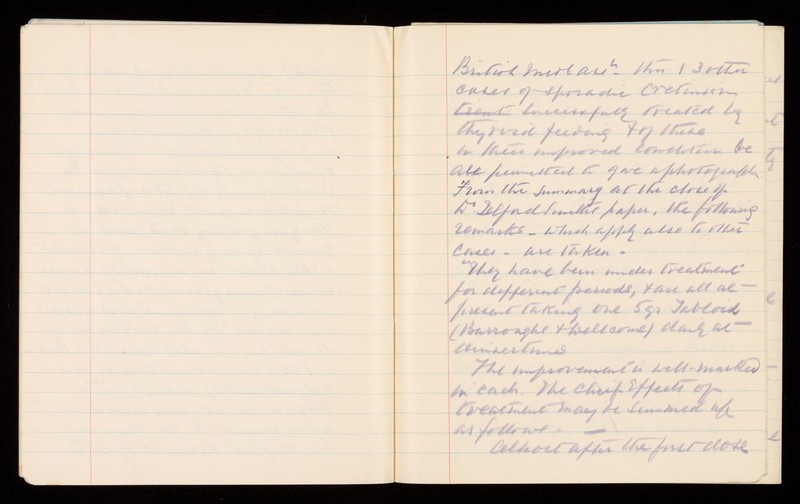 British Med Assn - this & 3 other
cases of sporadic Cretinism
treat successfully treated by
thyroid feeding & of these
in their improved condition we
are permitted to give a photograph.
From the Summary at the close of
Dr Telford Smith's paper, the following
remarks - which apply also to other
Cases - are taken -
"They have been under treatment
for different periods, & are all at
present taking one 5gr Tabloid
(Burroughs & Wellcome) daily at
dinnertime
The improvement is well-marked
in each. The Chief Effects of
treatment may be summed up
as follows - —
Almost after the first dose